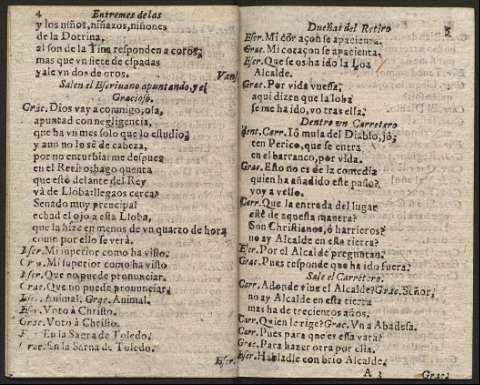 4 Entremes de las
y los niños, niñazos, niñones
de la Dotrina,
al son de la Tina responden a coros,
mas que vn siete de espadas
y vale vn dos de oros. Vanse
Salen el Escriuano apuntando, y el
Gracioso.
Grac. Dios vay a conmigo; ola,
apuntad con negligencia,
que ha vn mes solo que lo estudio;
y aun no lo sè de cabeza,
por no enturbiarme despues
en el Retiro: hago quenta
que estò delante del Rey
và de Lloba: llegaos cerca?
Senado muy prencipal
echad el ojo a esta Lloba,
que la hize en menos de vn quarto de hora
como por ello se verà.
Escr. Mi superior como ha visto.
Grac. Mi superior como ha visto
Escr. Que no puede pronunciar.
Grac. Que no puede pronunciar.
Escr. Animal. Grac. Animal.
Escr. Voto à Christo.
Grac. Voto à Christo.
Escr. En la Sagra de Toledo.
Grac. En la Sarna de Toledo.
Escr.
Dueñas del Retiro
Escr. Mi coraçon se apacienta.
Grac. Mi coraçon se apacienta.
Escr. Que se os ha ido la Loa
Alcalde.
Grac. Por vida vuessa,
aqui dizen que la loba
se me ha ido, vo tras ella.
Dentro vn Carretero
dent. Carr. Iò mula del Diablo, jò,
ten Perico, que se entra
en el barranco, por vida.
Grac. Esto no es de la comedia
quien ha añadido este passo?
voy a vello.
Carr. Que la entrada del lugar
estè de aquesta manera?
Son Christianos, ò harrieros?
no ay Alcalde en esta tierra?
Escr. Por el Alcalde preguntan.
Grac. Pues responde que ha ido fuera.
Sale el Carretero.
Carr. Adonde viue el Alcalde? Grac. Señor,
no ay Alcalde en esta tierra
mas ha de trecientos años,
Carr. Quien le rige? Grac. Vna Abadesa.
Carr. Pues para que es essa vara?
Grac. Para hazer otra por ella.
Escr. Habladle con brio Alcalde.
A 3 Grac.